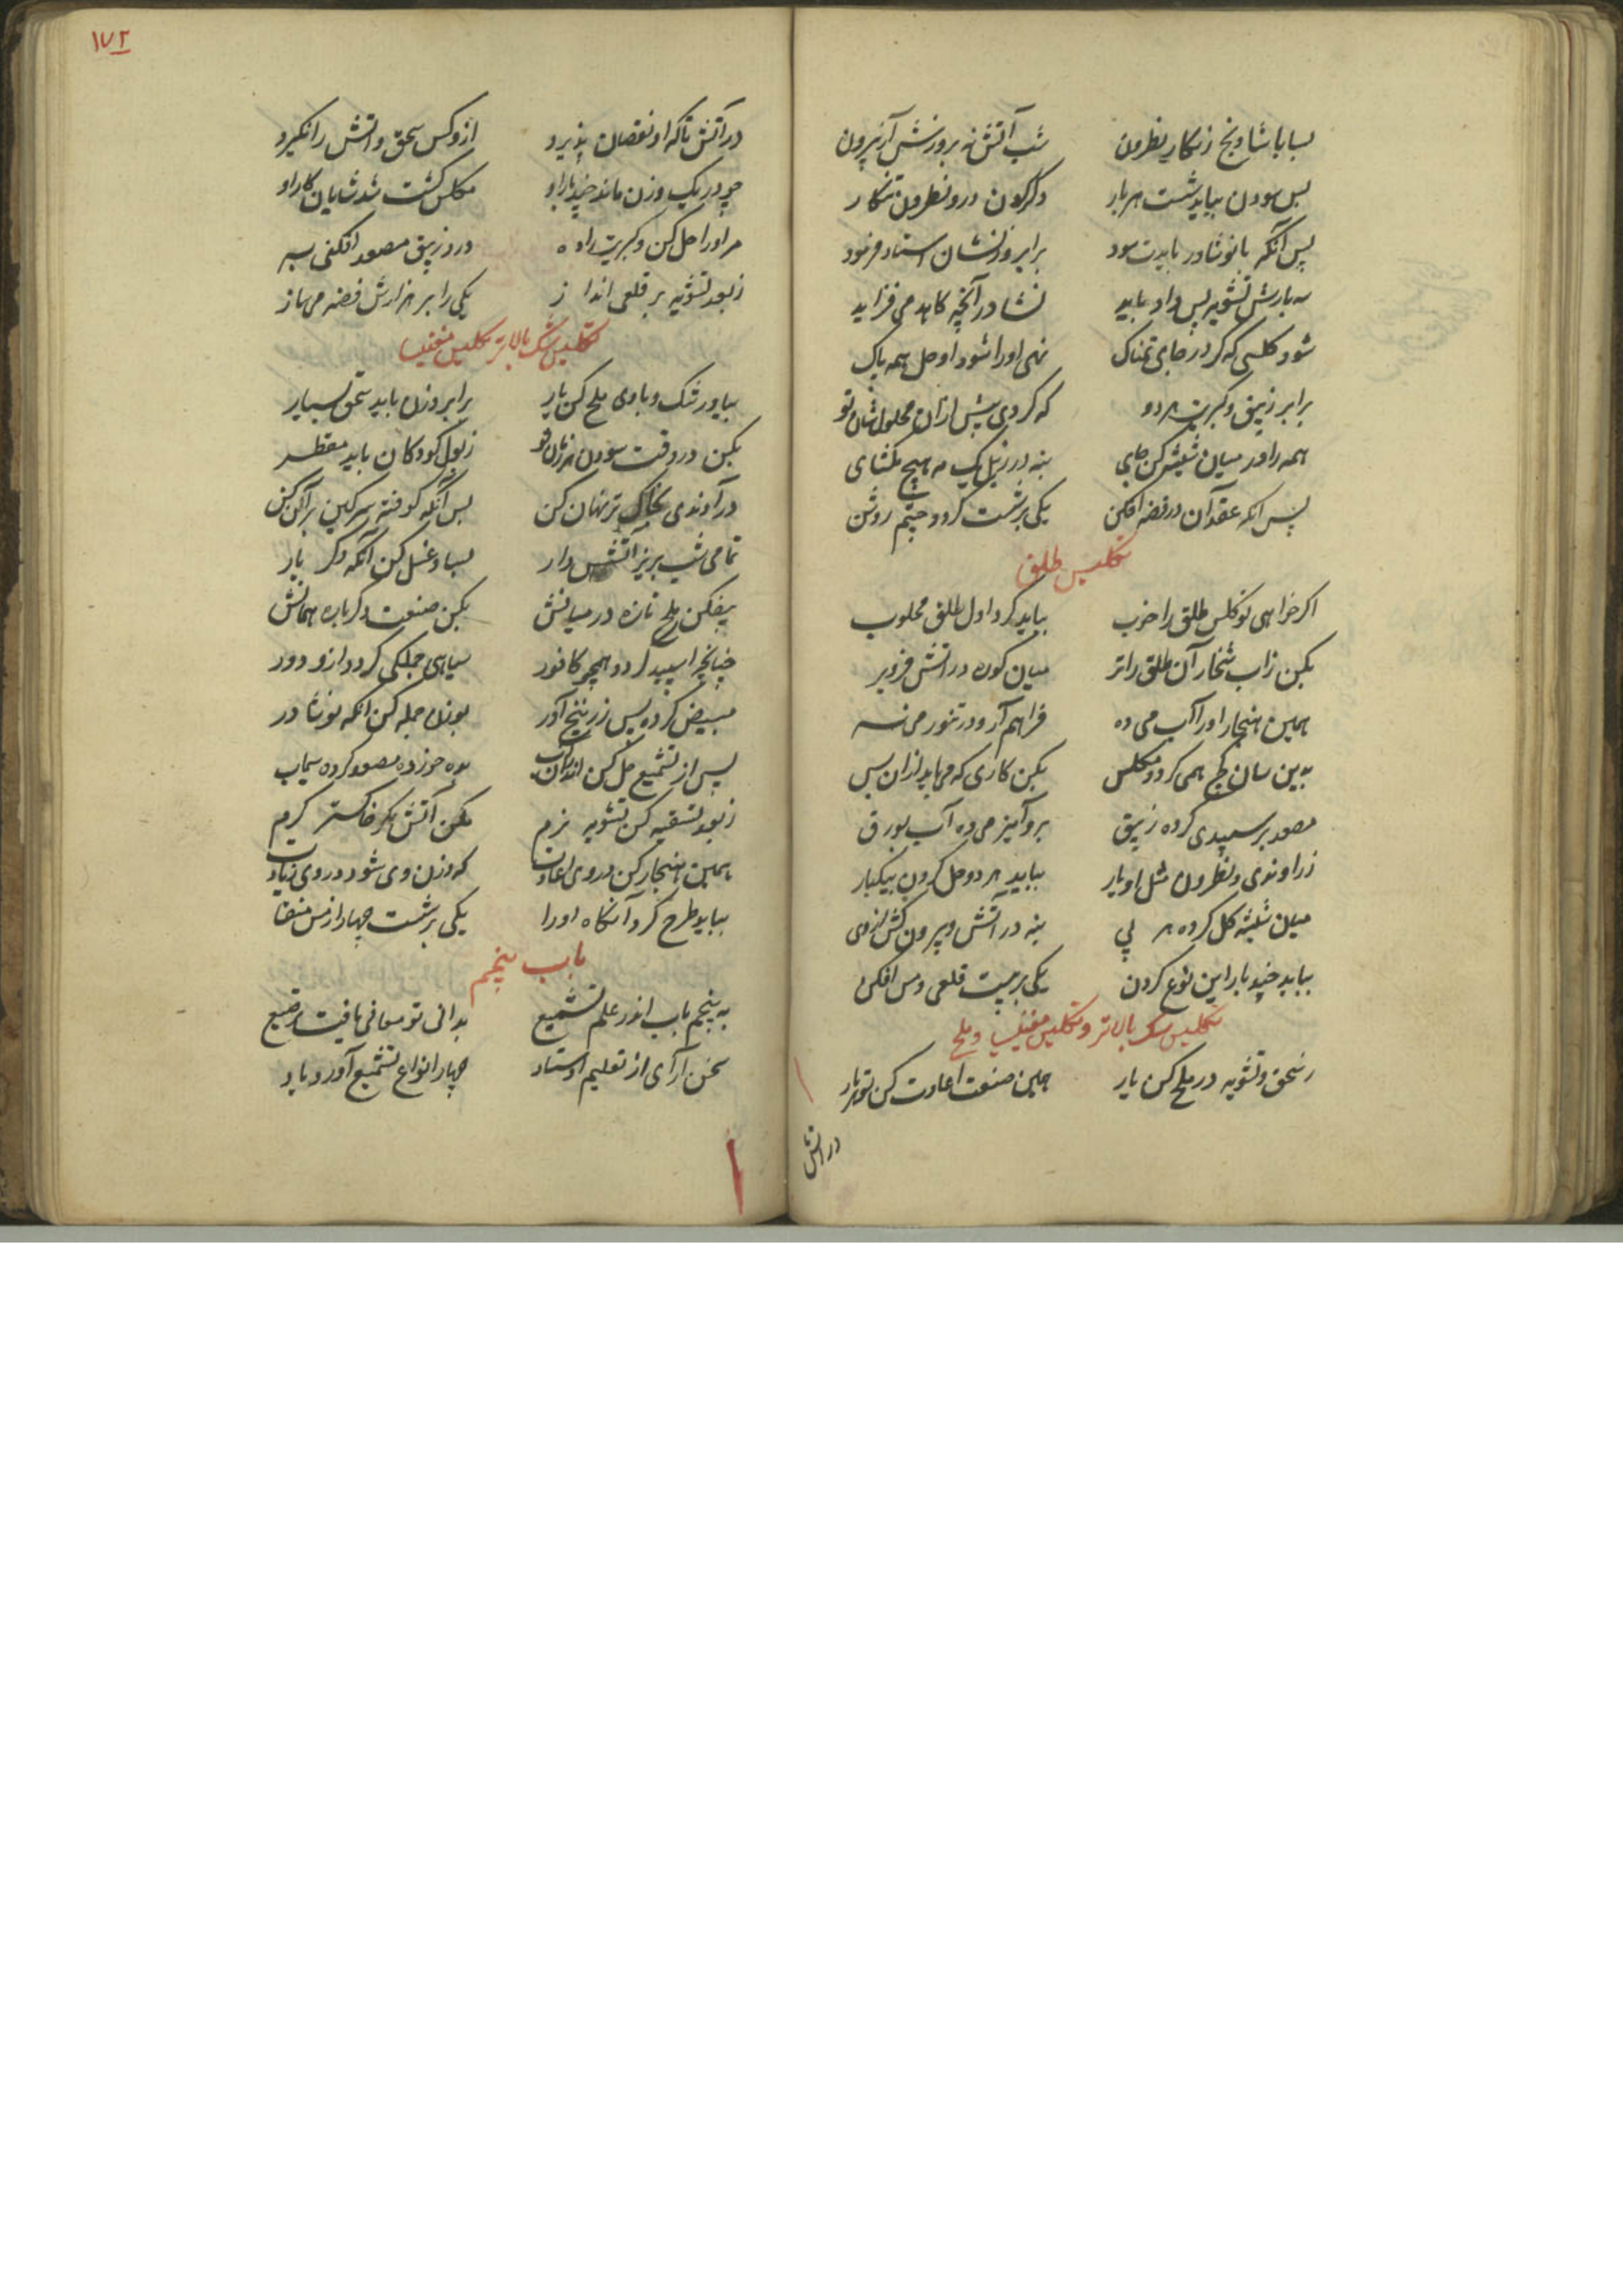 بسا با شاونج زنکار نطرون شب آتش نه بروزش آر بیرون
پس سودن بباید شست هر بار دکرکون درو نطرون تنکار
پس آنکه بانوشادر بایدت سود برابر وزنشان استاد فرمود
سه بارش تشویه پس داد باید نشادر آنچه کاهد می فزاید
شود کلسی که کر در جای نمناک نهی اورا شود او حل همه پاک
برابر زیبق و کبریت هر دو که کردی پیش ازان محلولشان تو
همه را در میان شیشه کن جای بنه در زبل یک مه هیچ مکشای
پس آنکه عقد آن در فضه افکن یکی بر شست کردد چشم روشن
تکلیس طلق
اکر خواهی تو کلس طلق را خوب بباید کرد اول طلق محلوب
بکن زاب شخار آن طلق را تر میان کوزه در آتش فرو بر
همین هنجار اورا آب می ده فراهم آر و در تنور می نه
بدین سان کچ همی کردد مکلس بکن کاری که می باید ازان پس
مصعد بر سپیدی کرده زیبق برو آمیز می ده آب بورق
زراوندی و نطرون مثل او یار بباید هر دو حل کردن بیکبار
میان شیشه کل کرده هر پی بنه در آتش و بیرون کش از وی
بباید چند بار این نوع کردن یکی بر بیست قلعی و مس افکن
تکلیس بالاتر و تکلیس مغنیسیا و ملح
ز سحق و تشویه در ملح کن یار همین صنعت اعادت کن تو هر بار
در آتش
۱۷۲
در آتش تا که او نقصان پذیرد ازو کس سحق و آتش را نکیرد
چو در یک وزن ماند چند بار او مکلس کشت شد شایان کار او
مر اورا حل کن و کبریت را ده درو زیبق مصعد افکنی به
ز بعد تشویه بر قلعی انداز یکی را بر هزارش فضه می ساز
تکلیس بالاتر تکلیس مغنیسیا
بیاور تنک و با وی ملح کن یار برابر وزن باید سحق بسیار
بکن در وقت سودن هر زمان تر ز بول کودکان باید مقطر
در آوندی بخاک تر نهان کن پس آنکه کوفته سرکین بر آن کن
تمامی شب بریز آتش دار بسا و غسل کن آنکه دکر بار
بیفکن ملح تازه در میانش بکن صنعت دکرباره همانش
چنانچه اسپید کردد همچو کافور سیاهی جملکی کردد ازو دور
مبیض کرده پس زرنیخ آور بوزن جمله کن آنکه نوشادر
پس از تشمیع حل کن اندران آب بده خوردن مصعد کرده سیماب
ز بعد تسقیه کن تشویه نرم مکن آتش مکر خاکستر کرم
بهمین هنجار کن دروی اعادت که وزن وی شود دروی زیادت
بباید طرح کرد آنکاه اورا یکی بر شست چهار از مس منقا
باب پنجم
به پنجم باب اندر علم تشمیع بدانی تو معانی یافت ترصیع
سخن آرای از تعلیم استاد چهار انواع تشمیع آورد یاد